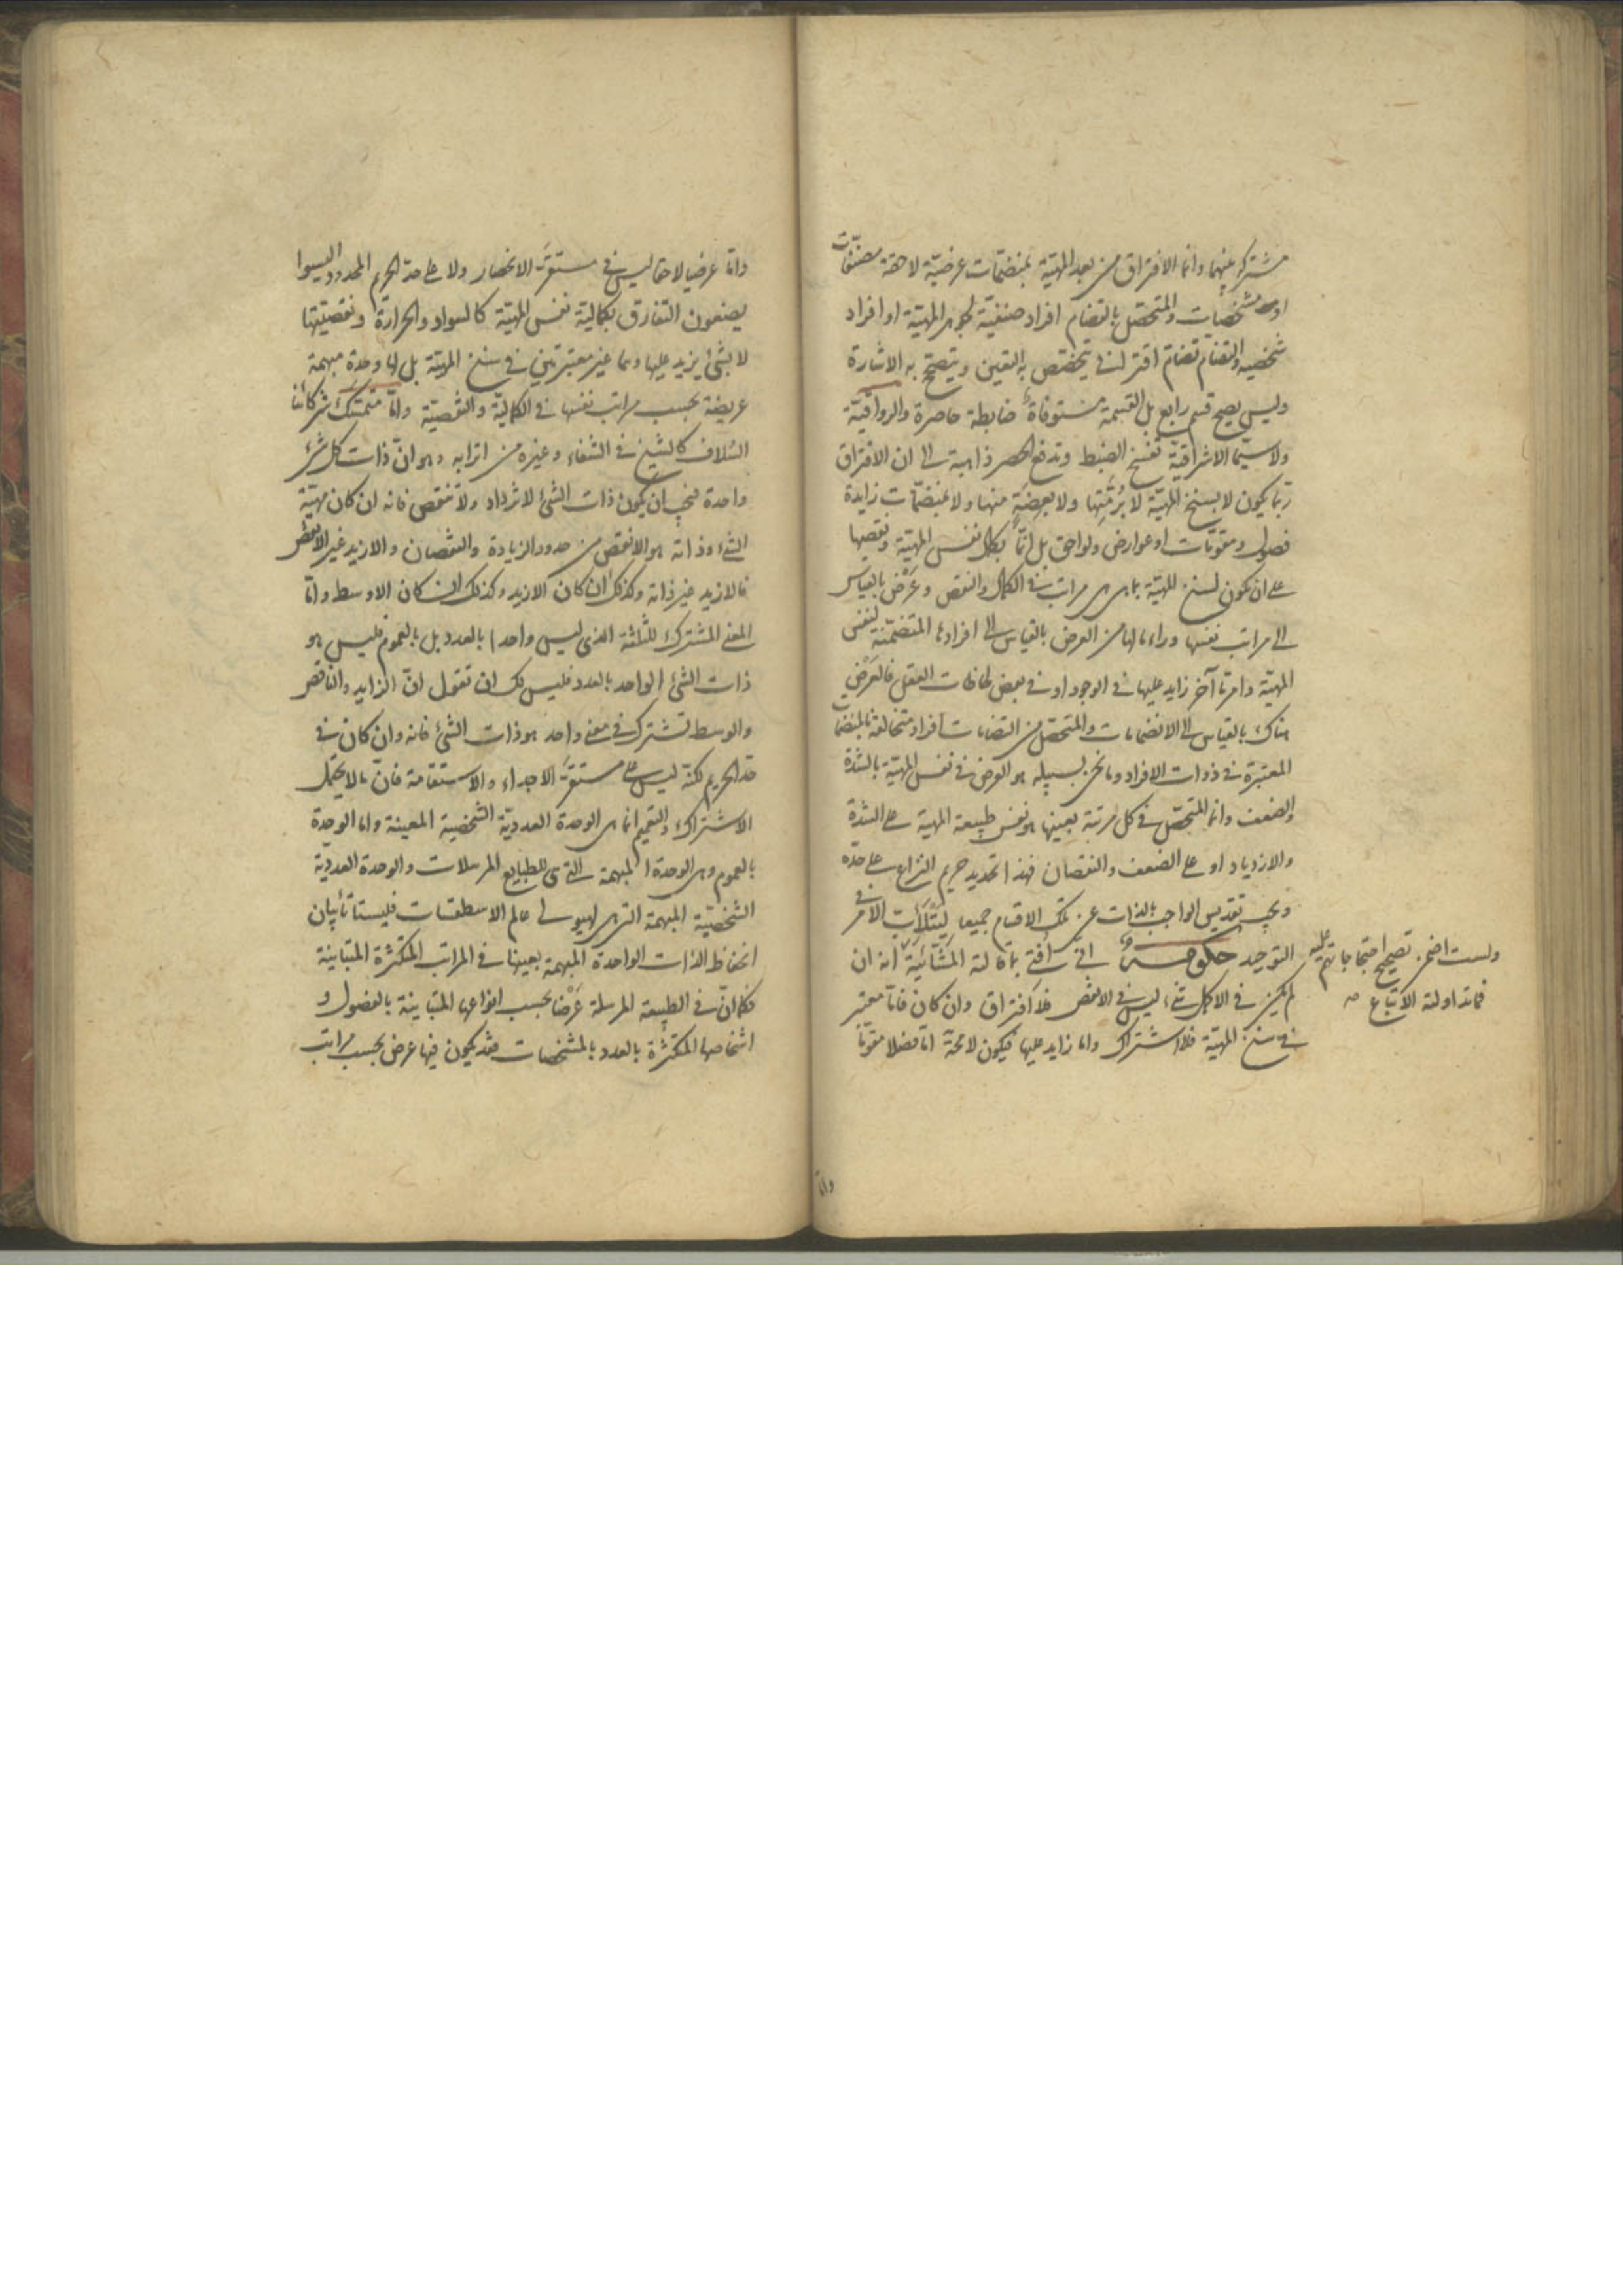 مشتركة بينهما وانما الافتراق من بعد المهيّة بمنضمّات عرضيّة لاحقة مصنّفات
او مشخّصات والمتحصّل بالتضام افراد صنفيّة لجوهر المهيّة او افراد
شخصيه والتضامّ تضامّ اقترانى يتخصّص به التعين ويتصحّح به الاشارة
وليس يصح قسم رابع بل القسمة مستوفاة ضابطة حاصرة والرواقيّة
ولا سيّما الاشراقيّة تفسخ الضبط وتدفع الحصر ذاهبة الى ان الافتراق
ربّما يكون لا بسنخ المهيّة لا برُمّتها ولا ببعضٍ منها ولا بمنضمّات زايدة
فصول ومقوّمات او عوارض ولواحق بل انّما بكمال نفس المهيّة ونقصها
على ان يكون لسنخ المهيّة بما هى هى مراتب فى الكمال والنقص وعَرْض بالقياس
الى مراتب نفسها وراء ما لها من العرض بالقياس الى افرادها المتضمّنة لنفس
المهيّة وامر ما آخر زايد عليها فى الوجود او فى بعض لحاظات العقل فالعَرْض
هناك بالقياس الى الانضمامات والمتحصّل من التضامات افراد متخالفة بالمنضمات
المعتبرة فى ذوات الافراد وما نحن بسبيله هو العرض فى نفس المهيّة بالشدّة
والضعف وانما المتحصّل فى كل مرتبة بعينها هو نفس طبيعة المهية على الشدّة
والازدياد او على الضعف والنقصان فهذا تحديد حريم النزاع على حدّه
ويجب تقديس الواجب بالذات عن تلك الاقسام جميعا ليتلأبّ الامر فى
التوحيد حكومة انى لست افتى بما قالته المشّائيّة انه ان
لم يكن فى الاكمل شئ ليس فى الانقص فلا افتراق وان كان فامّا معتبر
فى سنخ المهيّة فلا اشتراك واما زايد عليها فيكون لا محة امّا فصلا مقوّما
ولست اضمن تصحيح احتجاجاتهم عليه
فما تداولته الاتباع
وامّا
وامّا عرضيا لاحقا ليس فى مستقرّ الانحصار ولا على حدّ الحريم المحدود اليسوا
يضعون التفارق بكمالية نفس المهيّة كالسواد والحرارة ونقصيّتها
لا بشئ يزيد عليها وهما غير معتبرتين فى سنخ المهيّة بل لها وحدة مبهمة
عريضة بحسب مراتب نفسها فى الكماليّة والنقصيّة وامّا متمسّك شركائنا
السّلاف كالشيخ فى الشفاء وغيره من اترابه وهو انّ ذات كل شئ
واحدة فيجب ان يكون ذات الشئ لا تزداد ولا تنقص فانه ان كان مهيّة
الشئ وذاته هو الانقص من حدود الزيادة والنقصان والازيد غير الانقص
فالازيد غير ذاته وكذلك ان كان الازيد وكذلك ان كان الاوسط وامّا
المعنى المشترك للثلثة الذى ليس واحدا بالعدد بل بالعموم فليس هو
ذات الشئ الواحد بالعدد فليس لك ان تقول انّ الزايد والناقص
والوسط تشترك فى معنى واحد هو ذات الشئ فانه وان كان فى
حدّ الحريم لكنّه ليس على مستقرّ الاجداء والاستقامة فانّ ما لا يحتمل
الاشتراك والتعميم انما هى الوحدة العدديّة الشخصية المعينة واما الوحدة
بالعموم وهى الوحدة المبهمة التى هى للطبايع المرسلات والوحدة العدديّة
الشخصيّة المبهمة التى هى لهيولى عالم الاسطقسات فليستا تأبيان
انحفاظ الذات الواحدة المبهمة بعينها فى المراتب المتكثّرة المتباينة
فكما انّ فى الطبيعة المرسلة عَرْضا بحسب انواعها المتباينة بالفصول و
اشخاصها المتكثّرة بالعدد بالمشخصات فقد يكون فيها عرض بحسب مراتب